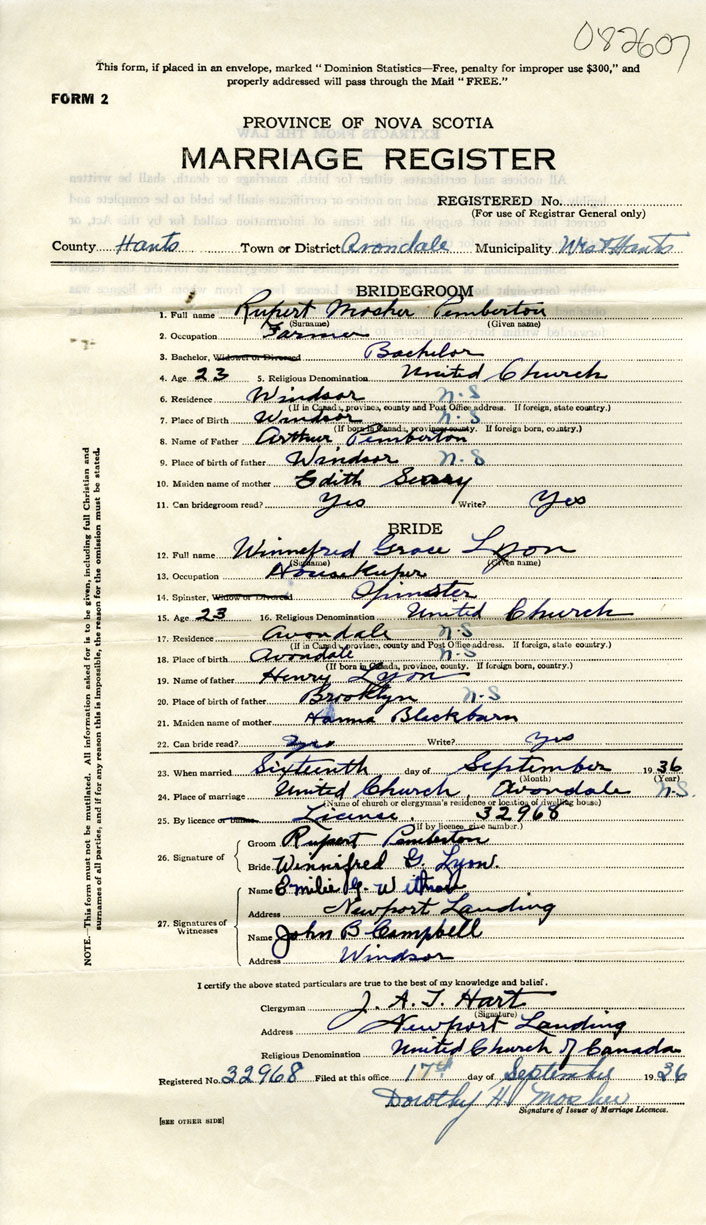 082607
This form, if placed in an envelope, marked "Dominion Statistics—Free, penalty for improper use $300," and
properly addressed will pass through the Mail "FREE."
FORM 2
PROVINCE OF NOVA SCOTIA
MARRIAGE REGISTER
REGISTERED No.
(For use of Registrar General only)
County Hants Town or District Avondale Municipality West Hants
BRIDEGROOM
1. Full name Rupert Mosher Pemberton
(Surname) (Given name)
2. Occupation Farmer
3. Bachelor, Widowed or Divorced Bachelor
4. Age 23 5. Religious Denomination United Church
6. Residence Windsor N.S
(If in Canada, province, county and Post Office address. If foreign, state country.)
7. Place of Birth Windsor N.S
(If born in Canada, province, county. If foreign born, country.)
8. Name of Father Arthur Pemberton
9. Place of birth of father Windsor N.S
10. Maiden name of mother Edith
11. Can bridegroom read? Yes Write? Yes
BRIDE
12. Full name Winnefred Grace Lyon
(Surname) (Given name)
13. Occupation Housekeeper
14. Spinster, Widow or Divorced Spinster
15. Age 23 16. Religious Denomination United Church
17. Residence Avondale N.S
(If in Canada, province, county and Post Office address. If foreign, state country.)
18. Place of birth Avondale N.S
(If born in Canada, province, county. If foreign born, country.)
19. Name of father Henry Lyon
20. Place of birth of father Brooklyn N.S
21. Maiden name of mother Hanna Blackburn
22. Can bride read? Yes Write? Yes
23. When married Sixteenth day of September 1936
(Month) (Year)
24. Place of marriage United Church, Avondale N.S.
(Name of church or clergyman's residence or location of dwelling house)
25. By licence or banns License. 32968
(If by licence, give number.)
26. Signature of
Groom Rupert Pemberton
Bride Winnifred G. Lyon.
27. Signatures of Witnesses
Name Emilie G. Withrow
Address Newport Landing
Name John B Campbell
Address Windsor
I certify the above stated particulars are true to the best of my knowledge and belief.
Clergyman J. A. T. Hart
(Signature)
Address Newport Landing
Religious Denomination United Church of Canada
Registered No. 32968 Filed at this office 17th day of September 1936
Dorothy H. Mosher
Signature of Issuer of Marriage Licences.
[SEE OTHER SIDE]
NOTE.—This form must not be mutilated. All information asked for is to be given, including full Christian and
surnames of all parties, and if for any reason this is impossible, the reason for the omission must be stated.